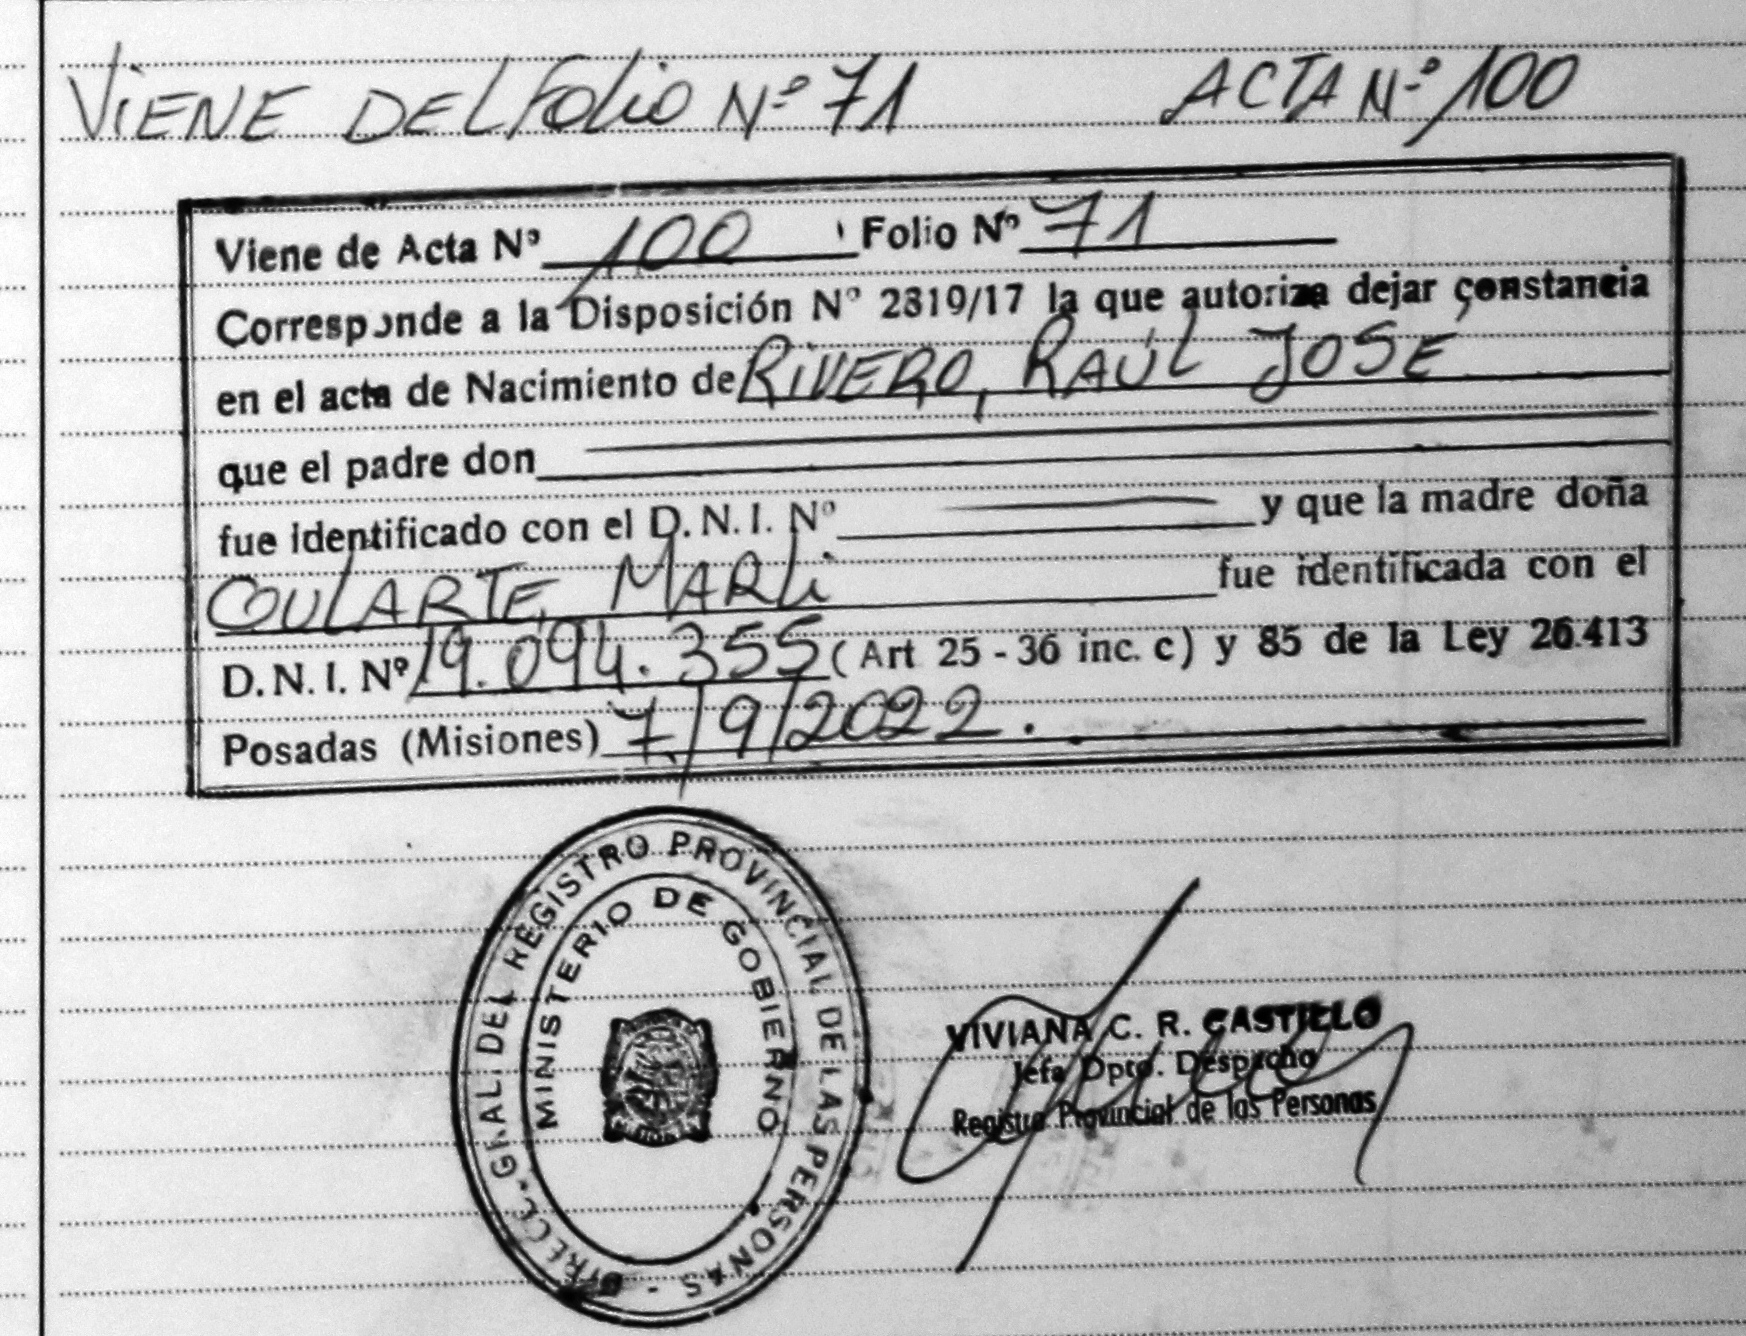 ViENE DEL Folio Nº 71 ACTA Nº 100
Viene de Acta Nº 100 Folio Nº 71
Corresponde a la Disposición Nº 2819/17 la que autoriza dejar constancia
en el acta de Nacimiento de RIVERO, RAÚL JOSE
que el padre don
fue identificado con el D.N.I. Nº y que la madre doña
GOULARTE, MARLi fue identificada con el
D.N.I. Nº 19.094.355 (Art 25 - 36 inc. c) y 85 de la Ley 26.413
Posadas (Misiones) 7/9/2022.
DIRECC. GRAL. DEL REGISTRO PROVINCIAL DE LAS PERSONAS -
MINISTERIO DE GOBIERNO
VIVIANA C. R. CASTILLO
Jefa Dpto. Despacho
Registro Provincial de las Personas